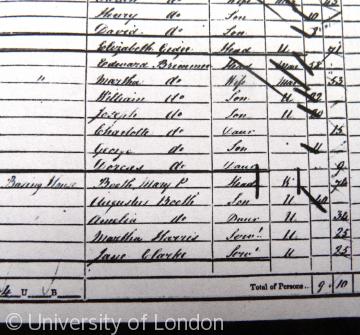 Henry do Son
David do Son
Elizabeth Gedge Head U 71
Edward Brimmer Head Mar
" Martha do Wife Mar 53
William do Son U
Joseph do Son U 20
Charlotte do Daur 15
George do Son 11
Dorcas do Daug 9
Booth Mary P. Head W 74
Augustus Booth Son U 40
Amelia do Daur U 34
Martha Harris Servt U 25
Jane Clarke Servt U 25
4 U B Total of Persons 9 10
© University of London